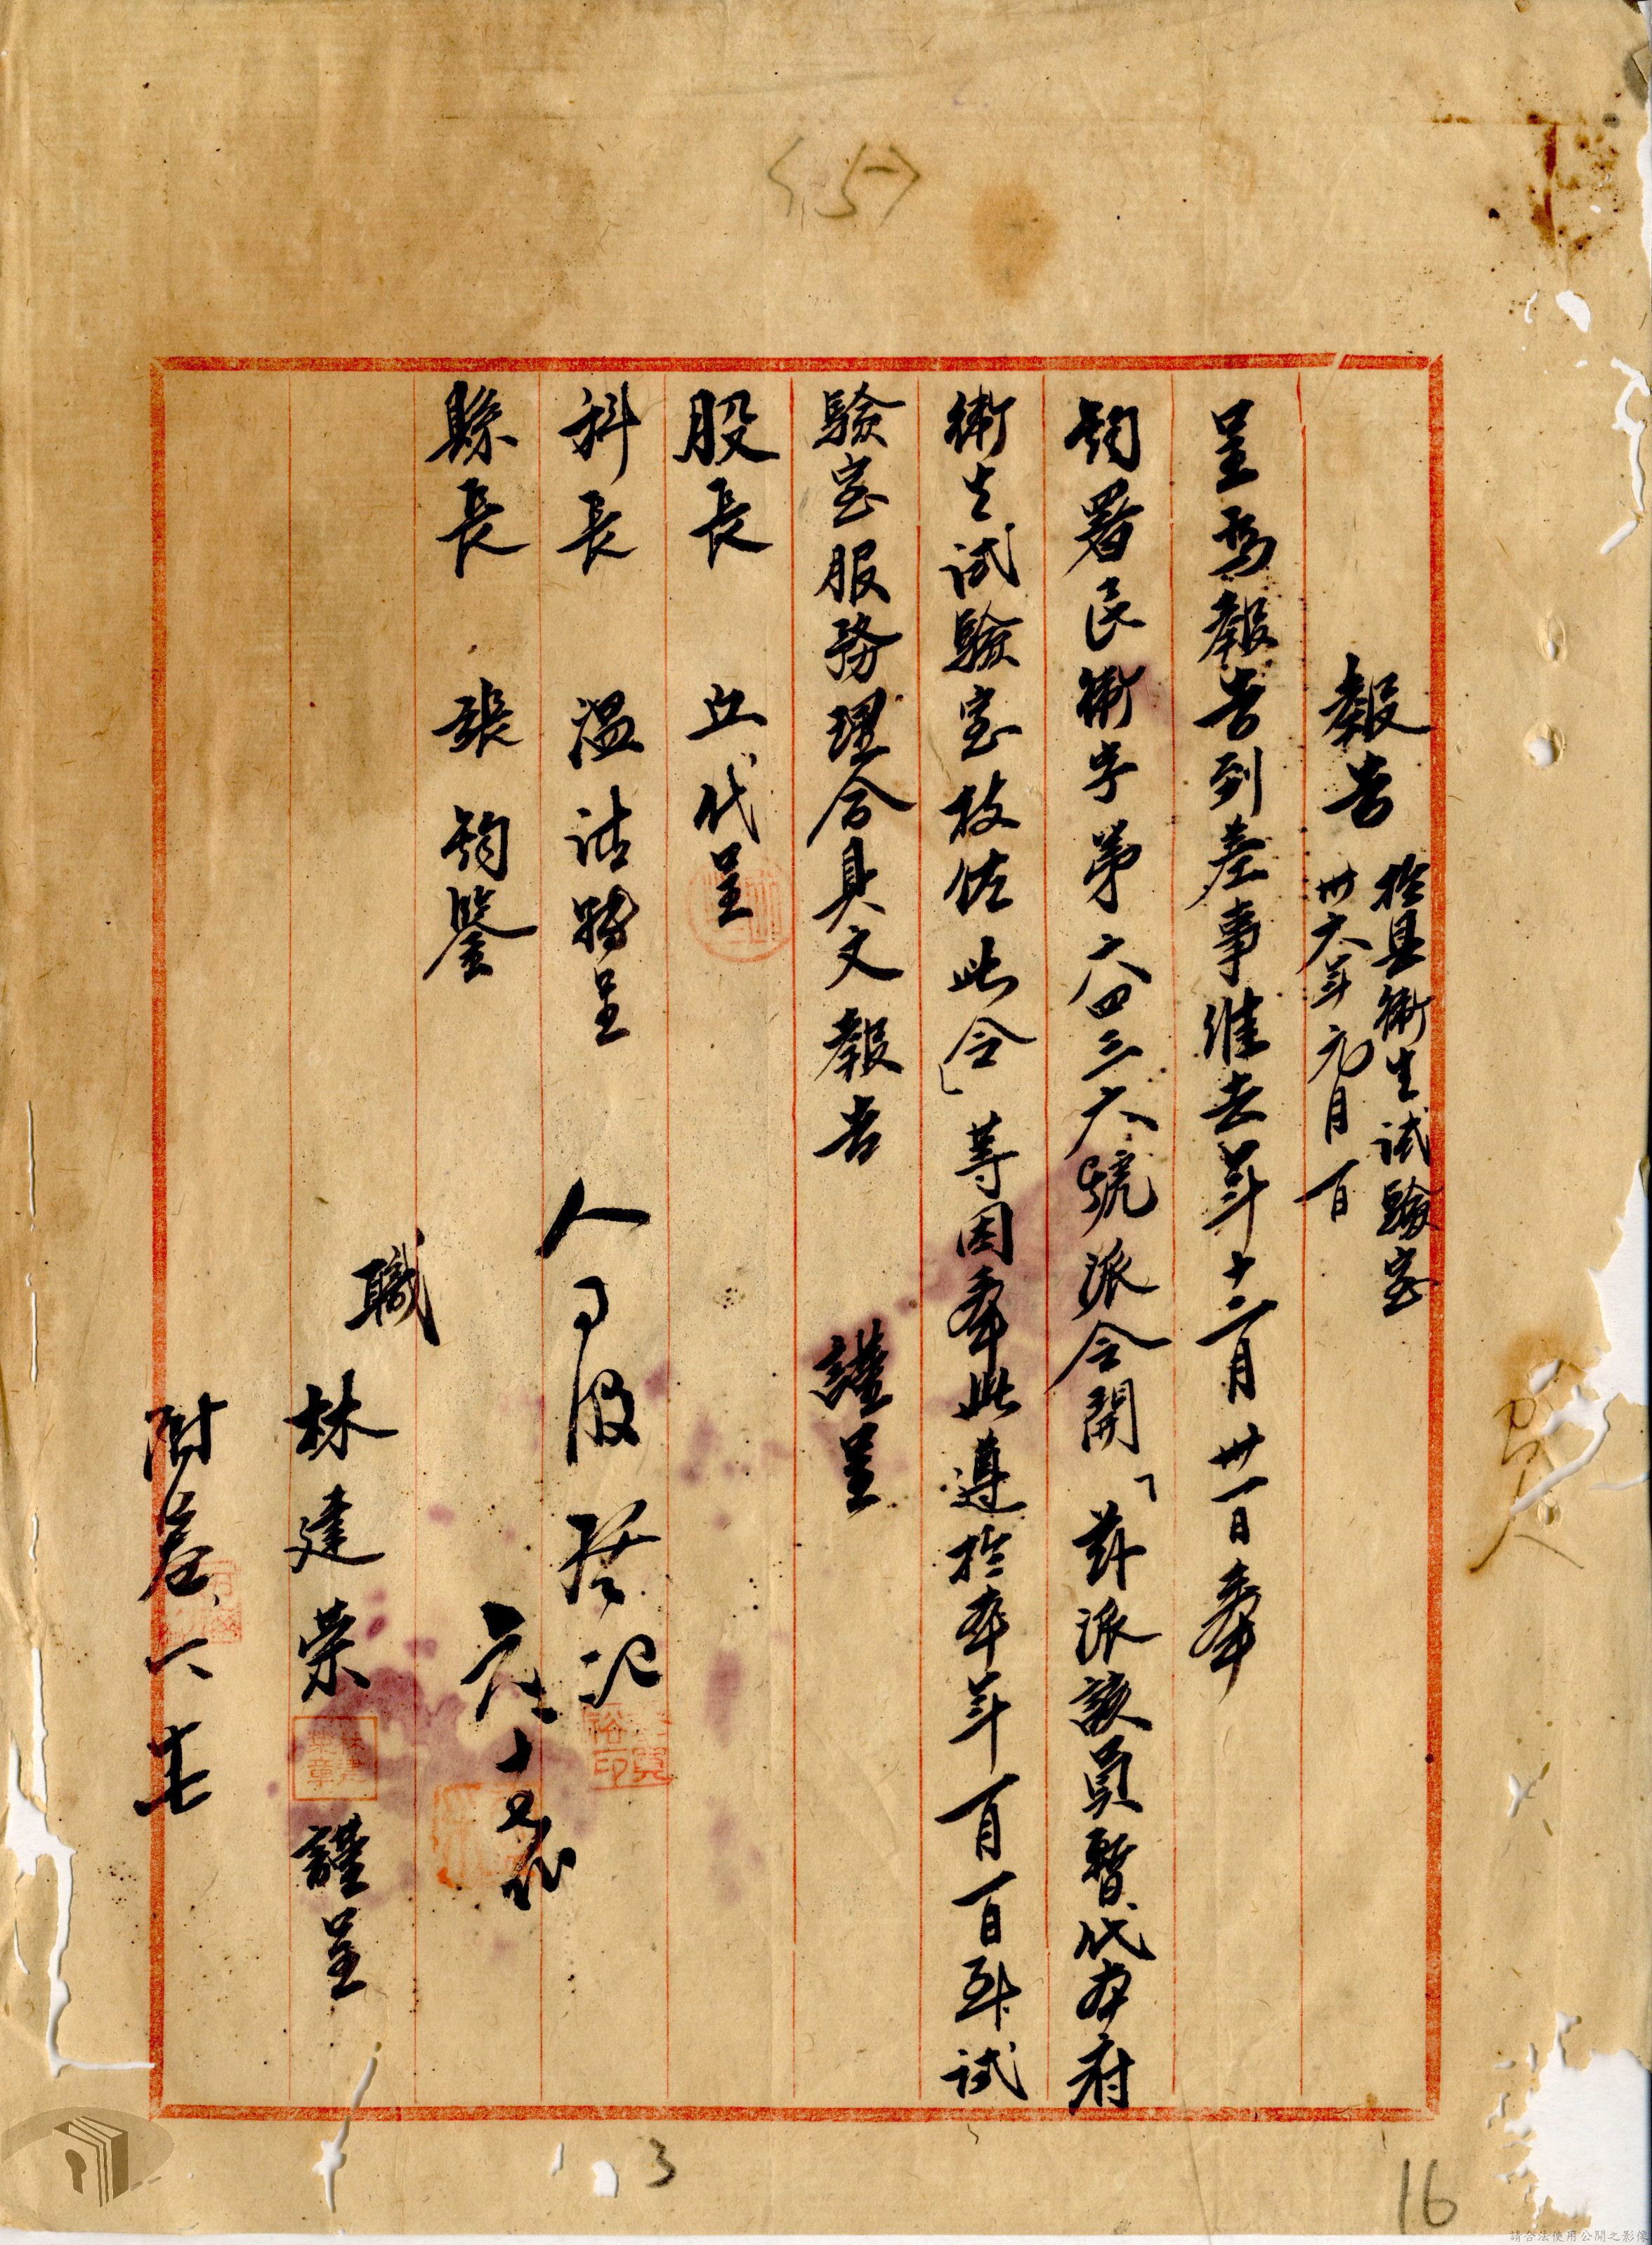 〈15〉
報告 於縣衛生試驗室
卅六年元月一日
呈為報告到差事維去年十二月卅一日奉
鈞署民衛字第六四三六號派令開「茲派該員暫代本府
衛生試驗室技佐此令」等因奉此遵於本年一月一日到試
驗室服務理合具文報告 謹呈
股長 丘 代呈
科長 溫 請轉呈
縣長 張 鈞鑒
人事股登記
元、十
職 林建榮 謹呈
附差
3
16
請合法使用公開之影像